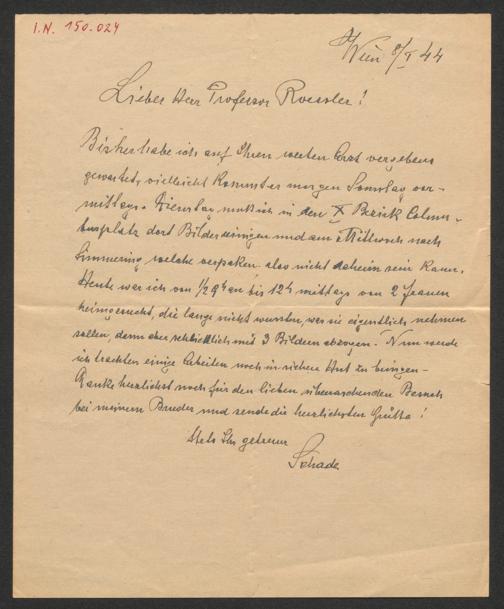 I.N. 150.024
Wien 8/I 44
Lieber Herr Professor Roessler!
Bisher habe ich auf Ihren werten Arzt vergebens
gewartet, vielleicht kommt er morgen Sonntag vor-
mittags. Dienstag muß ich in den X Bezirk Colum-
busplatz dort Bilder reinigen und am Mittwoch nach
Simmering, welche verpacken, also nicht daheim sein kann.
Heute war ich von 1/2 9h an bis 12h mittags von 2 Frauen
heimgesucht, die lange nicht wussten, was sie eigentlich nehmen
sollen, dann aber schließlich mit 3 Bildern abzogen. Nun werde
ich trachten einige Arbeiten noch in sichere Hut zu bringen-
Danke herzlichst noch für den lieben überraschenden Besuch
bei meinem Bruder und sende die herzlichsten Grüße!
Stets Ihr getreuer
Schade